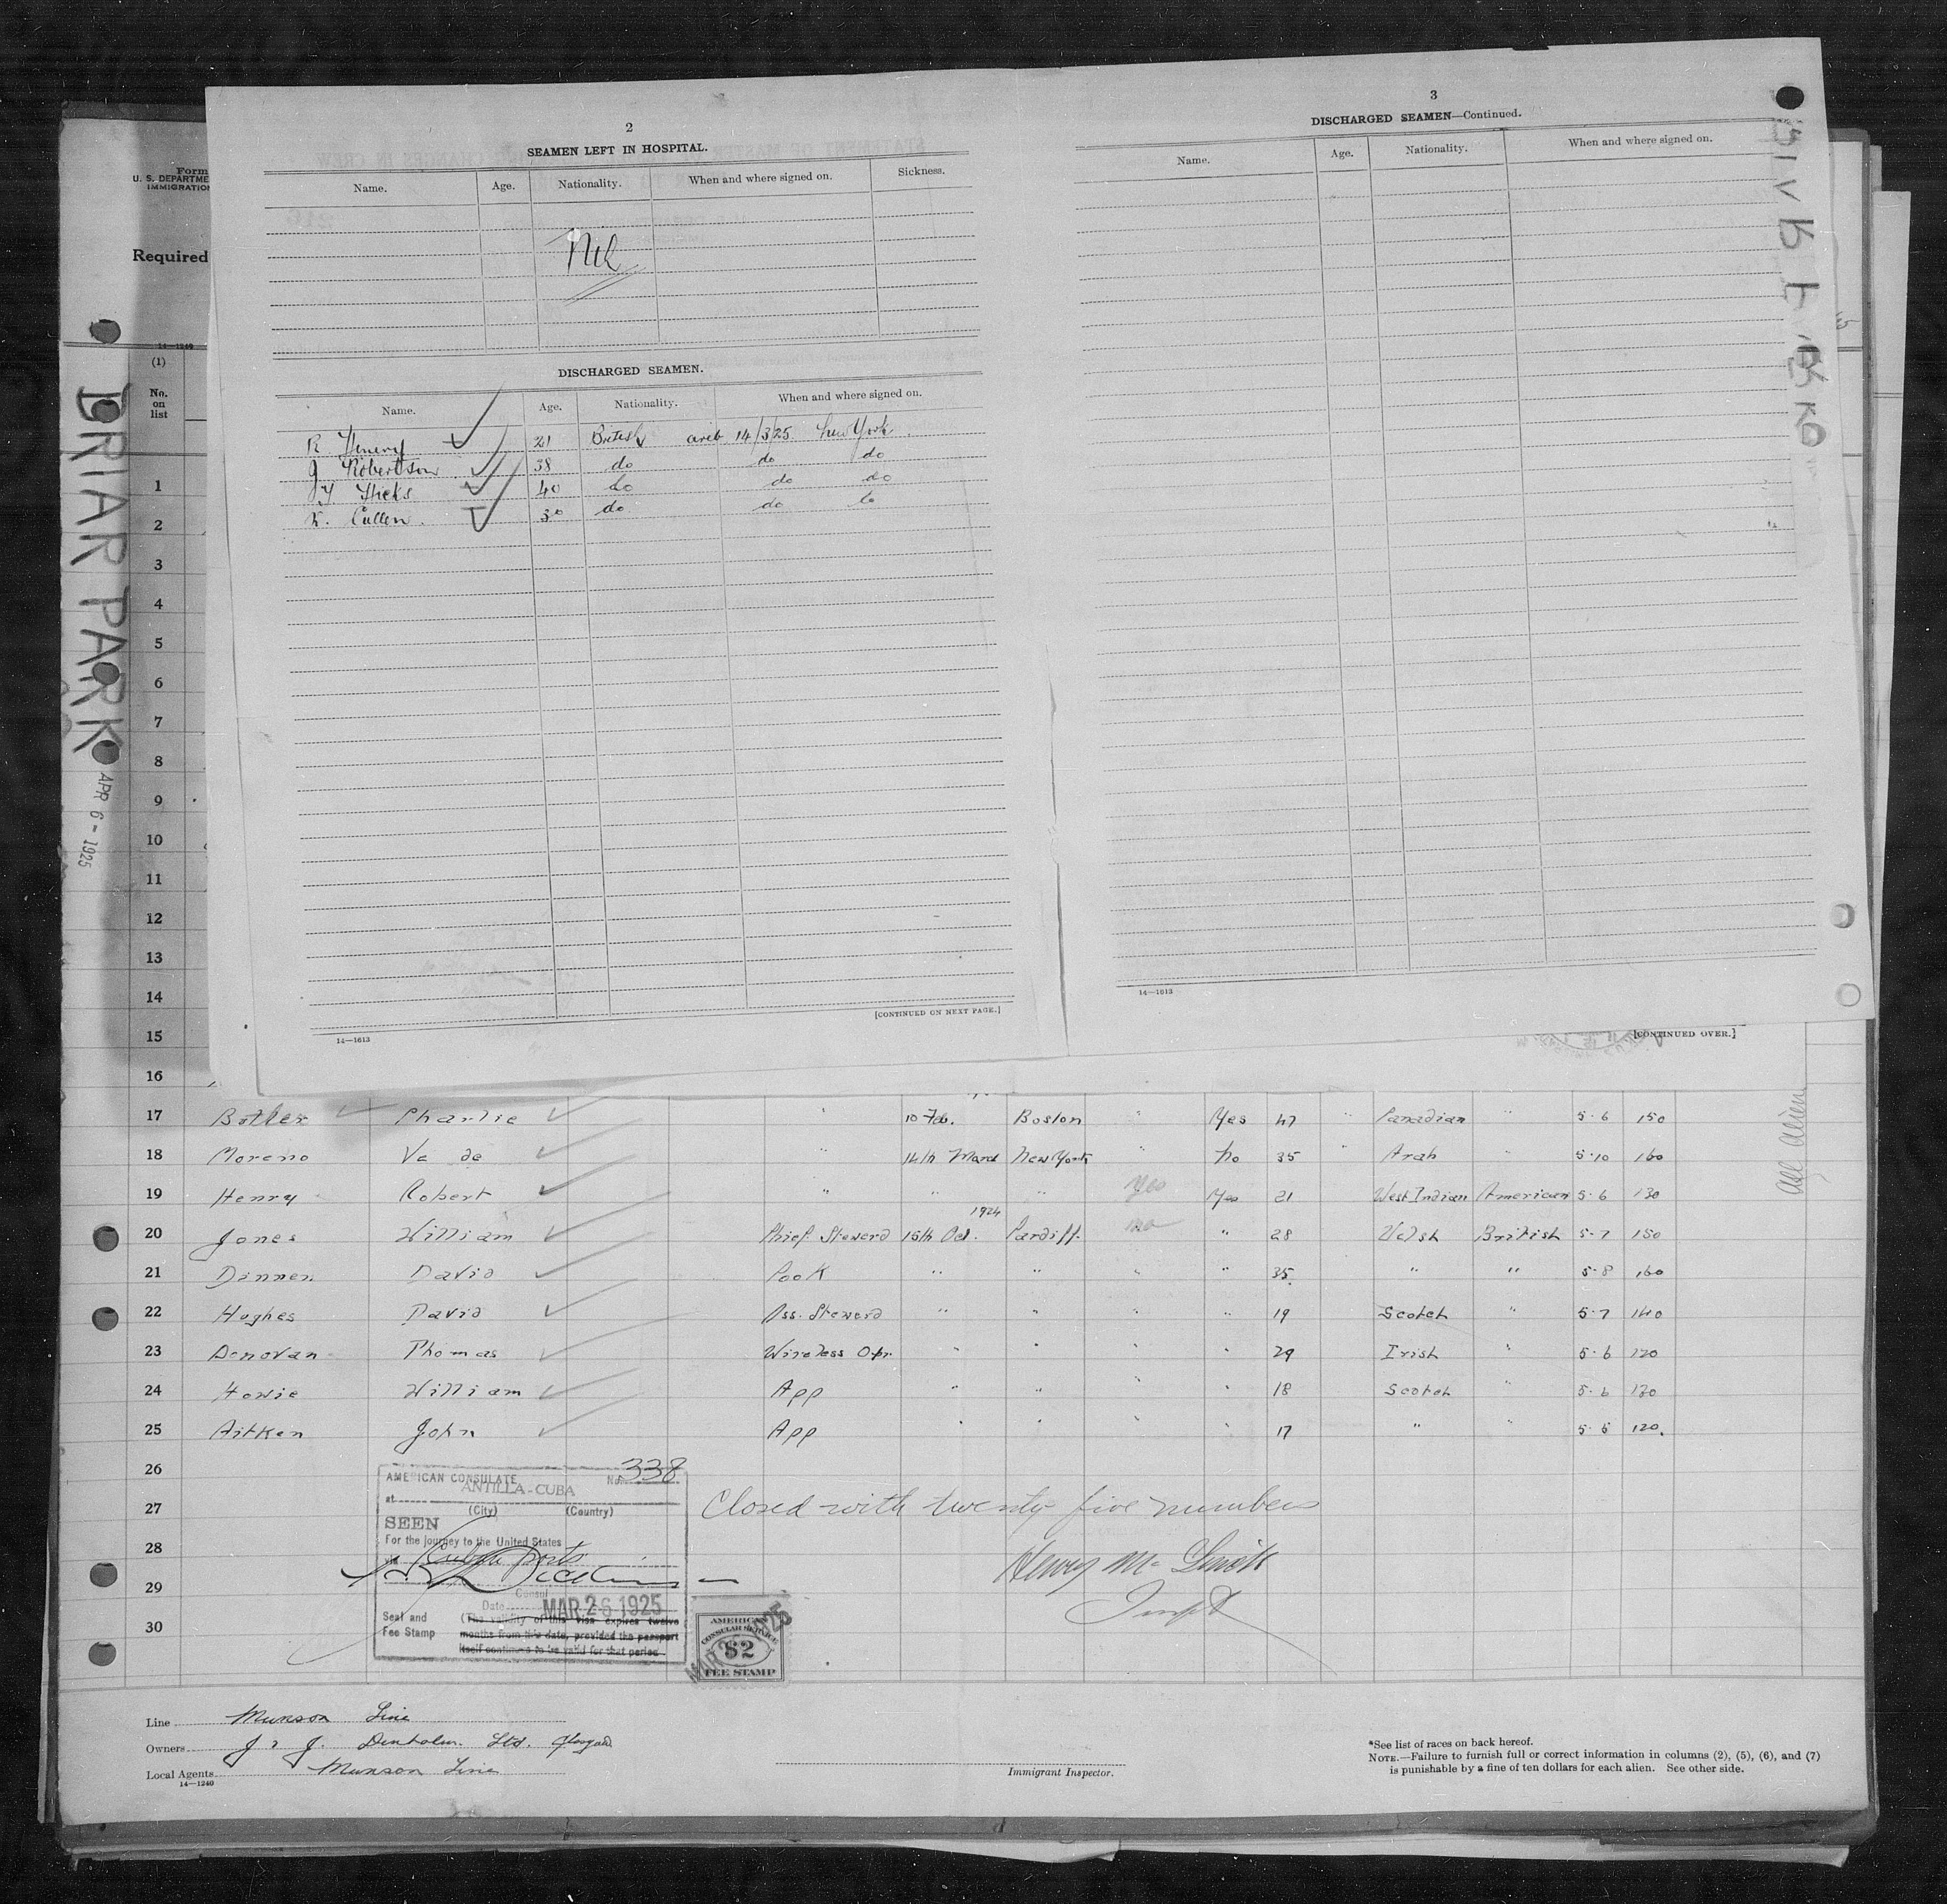 2
SEAMEN LEFT IN HOSPITAL.
Name. Age. Nationality. When and where signed on. Sickness.
Nil
DISCHARGED SEAMEN.
Name. Age. Nationality. When and where signed on.
R Henry 21 British 14/3/25 New York
J Robertson 38 do do do
Hicks 40 do do do
Cullen. 30 do do do
[CONTINUED ON NEXT PAGE.]
14—1613
3
DISCHARGED SEAMEN—Continued.
Name. Age. Nationality. When and where signed on.
14—1613
[CONTINUED OVER.]
BRIAR PARK
APR 6 - 1925
Form
U. S. DEPARTME
IMMIGRATION
Required
14—1240
(1)
No.
on
list
1
2
3
4
5
6
7
8
9
10
11
12
13
14
15
16
17 Botler Charlie " 10 Feb. Boston " Yes 47 " Canadian " 5-6 150
18 Moreno Va de " 14th March New York " No 35 " Arab " 5-10 160
19 Henry Robert " " " Yes Yes 21 West Indian American 5-6 130
1924
20 Jones William Chief Steward 15th Oct. Cardiff no " 28 Welsh British 5-7 150
21 Dinnen David Cook " " " " 35 " " 5-8 160
22 Hughes David Ass. Steward " " " " 19 Scotch " 5-7 140
23 Donovan Thomas Wireless Opr. " " " " 29 Irish " 5-6 120
24 Howie William App " " " " 18 Scotch " 5-6 120
25 Aitken John App " " " " 17 " " 5-5 120.
26
27
28
29
30
All Alien
AMERICAN CONSULATE No. 338
at ANTILLA-CUBA
(City) (Country)
SEEN
For the journey to the United States
via Cuban ports
Consul
Date MAR 26 1925
Seal and
Fee Stamp
(The validity of this visa expires twelve
months from this date, provided the passport
itself continues to be valid for that period.
AMERICAN
CONSULAR SERVICE
$2
FEE STAMP
Closed with twenty five numbers
Henry
Line Munson Line
Owners J & J. Denholm. Ltd. Glasgow
Local Agents Munson Line
14—1240
Immigrant Inspector.
*See list of races on back hereof.
NOTE.—Failure to furnish full or correct information in columns (2), (5), (6), and (7)
is punishable by a fine of ten dollars for each alien. See other side.